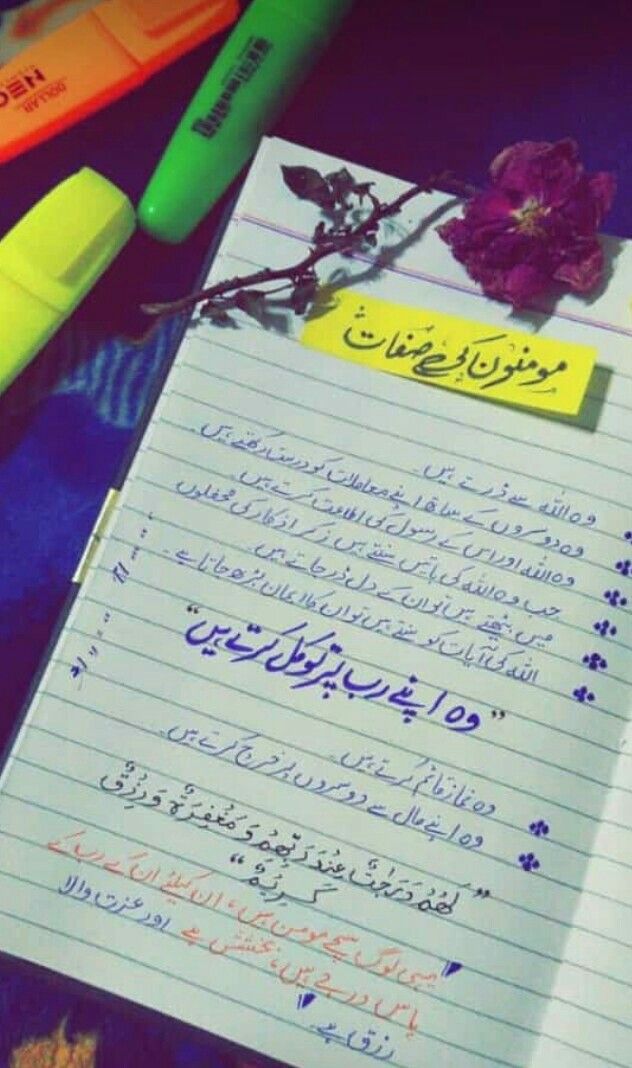 DOLLAR
NEO
مومنون کی صفات
وہ اللہ سے ڈرتے ہیں۔
وہ دوسروں کے ساتھ اپنے معاملات کو درست رکھتے ہیں۔
وہ اللہ اور اس کے رسول کی اطاعت کرتے ہیں۔
جب وہ اللہ کی باتیں سنتے ہیں ذکر اذکار کی محفلوں
میں بیٹھتے ہیں تو ان کے دل ڈر جاتے ہیں۔
اللہ کی آیات کو سنتے ہیں تو ان کا ایمان بڑھ جاتا ہے۔
"وہ اپنے رب پر توکل کرتے ہیں"
وہ نماز قائم کرتے ہیں۔
وہ اپنے مال سے دوسروں پر خرچ کرتے ہیں۔
"لَھُمْ دَرَجٰتٌ عِنْدَ رَبِّھِمْ وَ مَغْفِرَةٌ وَ رِزْقٌ
کَرِیْمٌ"
یہی لوگ سچے مومن ہیں، ان کیلئے ان کے رب کے
پاس درجے ہیں، بخشش ہے اور عزت والا
رزق ہے۔